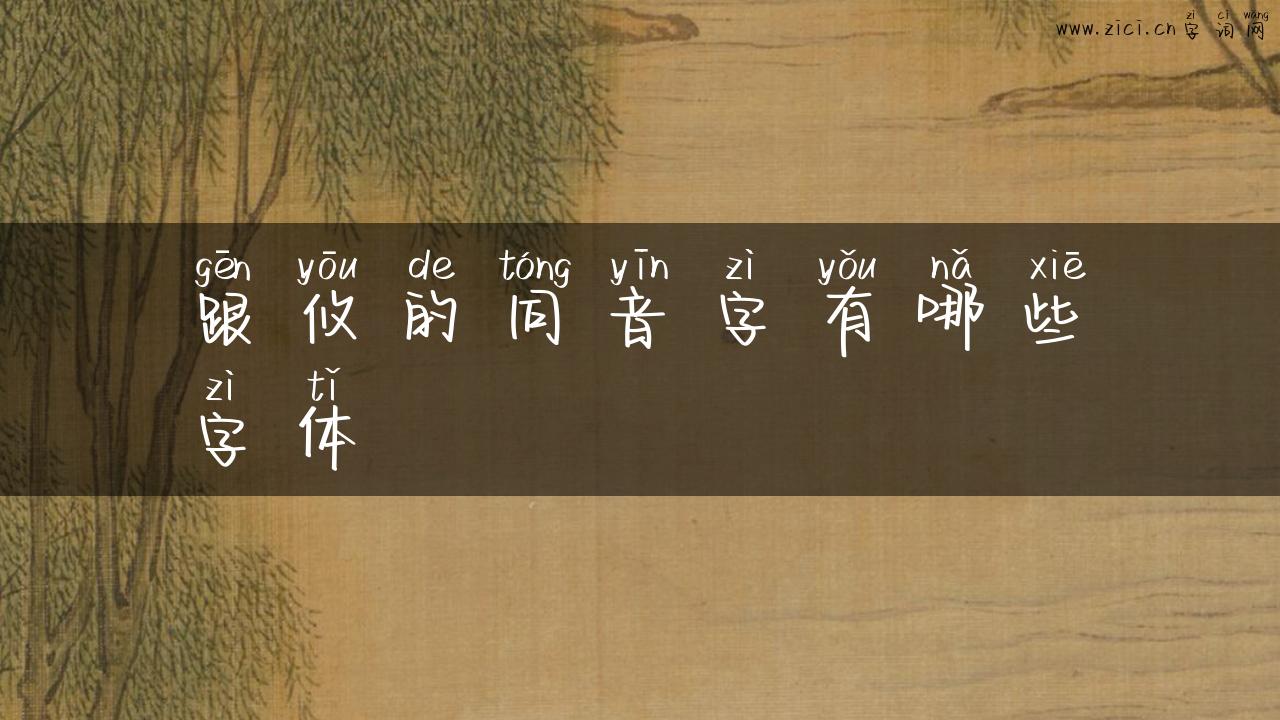 zì cí wǎng
www.zici.cn 字 词 网
gēn yōu de tóng yīn zì yǒu nǎ xiē
跟 攸 的 同 音 字 有 哪 些
zì tǐ
字 体